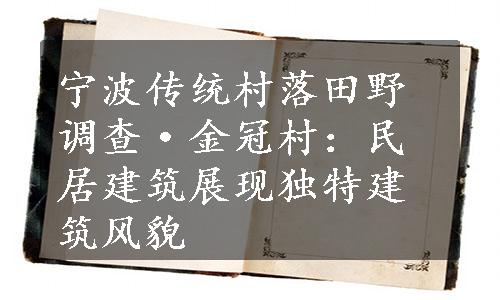 宁波传统村落田野
调查·金冠村：民
居建筑展现独特建
筑风貌